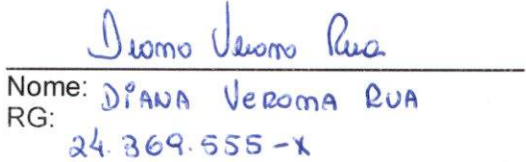 Diana Veroma Rua
Nome: DIANA VEROMA RUA
RG:
24.369.555-X